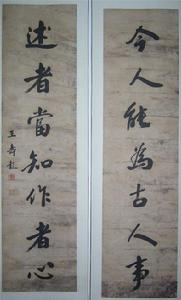 今人能為古人事
述者當知作者心
王壽彭